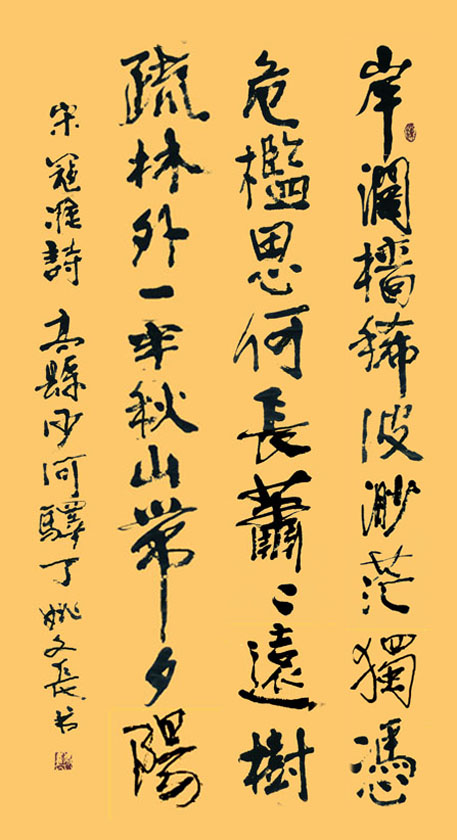 岸濶檣稀波渺茫獨憑
危檻思何長蕭〻遠樹
疏林外一半秋山帶夕陽
宋寇准詩 高縣沙河驛姚文長書